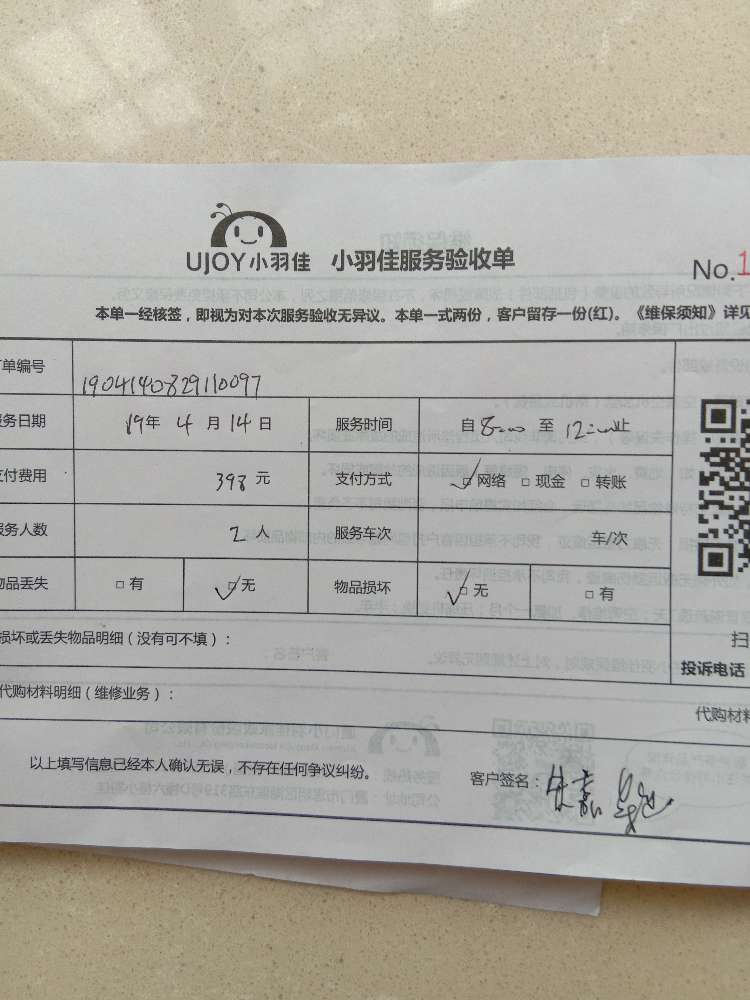 UJOY小羽佳 小羽佳服务验收单
No.1
本单一经核签，即视为对本次服务验收无异议。本单一式两份，客户留存一份(红)。《维保须知》详见
单编号 1904140829110097
务日期 19年 4 月 14 日 服务时间 自 8:00 至 12:00止
支付费用 398 元 支付方式 ☑网络 □现金 □转账
服务人数 2 人 服务车次 车/次
物品丢失 □有 ☑无 物品损坏 ☑无 □有
损坏或丢失物品明细（没有可不填）：
扫
投诉电话
代购材料明细（维修业务）：
代购材料
以上填写信息已经本人确认无误，不存在任何争议纠纷。
客户签名：